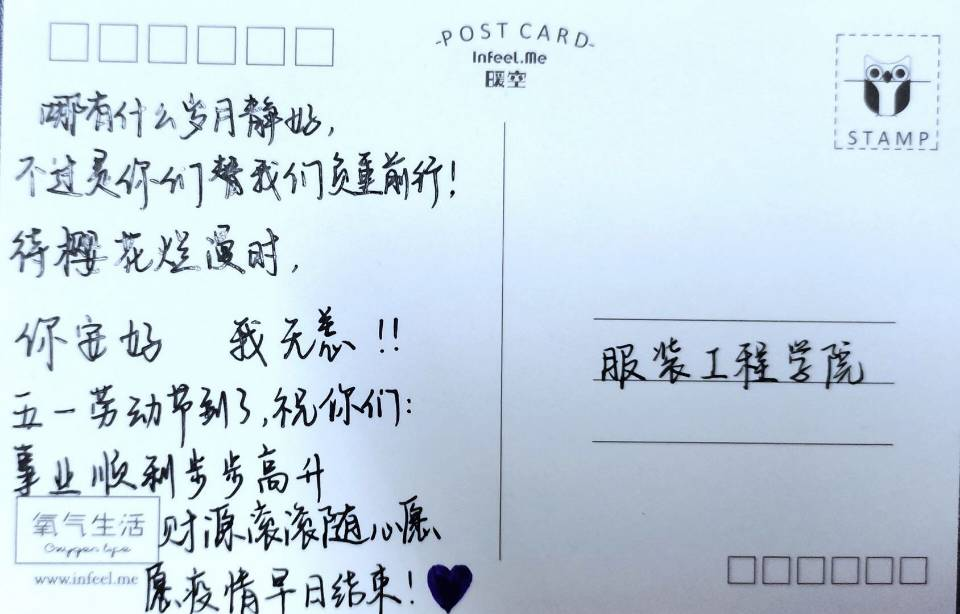 POST CARD
Infeel.Me
暖空
STAMP
哪有什么岁月静好,
不过是你们替我们负重前行!
待樱花烂漫时,
你安好 我无恙!!
五一劳动节到了,祝你们:
事业顺利步步高升
财源滚滚随心愿
愿疫情早日结束!
氧气生活
Oxygen life
www.infeel.me
服装工程学院